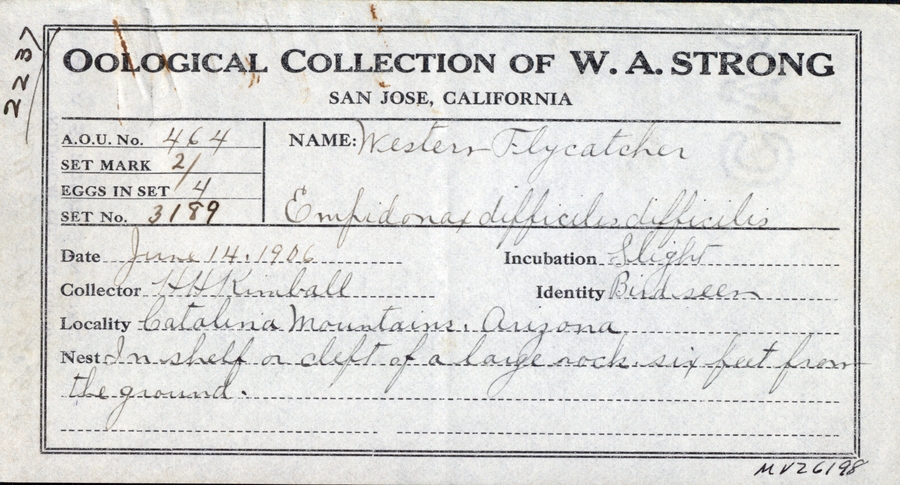 2237
OOLOGICAL COLLECTION OF W. A. STRONG
SAN JOSE, CALIFORNIA
A.O.U. No. 464
SET MARK 2/
EGGS IN SET 4
SET No. 3189
NAME: Western Flycatcher
Empidonax difficilis difficilis
Date June 14. 1906
Incubation Slight
Collector H H Kimball
Identity Bird seen
Locality Catalina Mountains. Arizona
Nest In shelf or cleft of a large rock six feet from
the ground.
MVZ6198